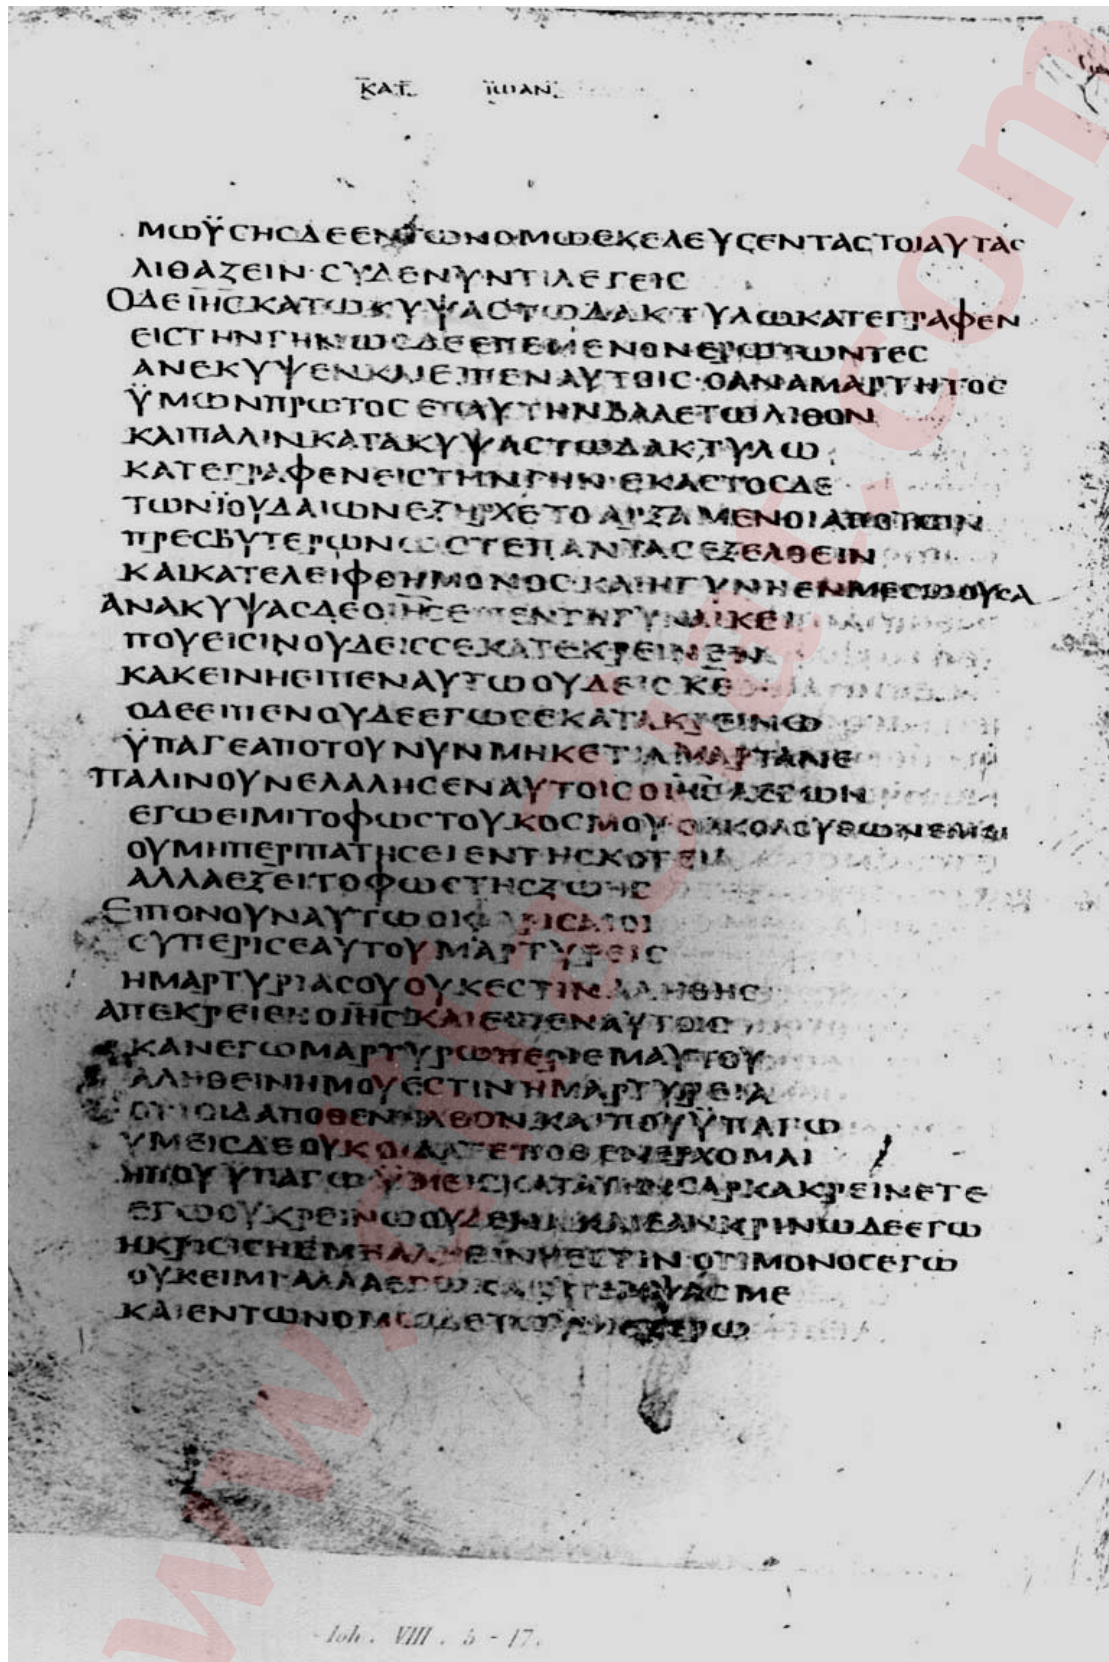 ΚΑΤ ΙΩΑΝ
ΜΩΫΣΗΣΔΕΕΝΤΩΝΟΜΩΕΚΕΛΕΥΣΕΝΤΑΣΤΟΙΑΥΤΑΣ
ΛΙΘΑΖΕΙΝ·ΣΥΔΕΝΥΝΤΙΛΕΓΕΙΣ
ΟΔΕΙΗΣΚΑΤΩΚΥΨΑΣΤΩΔΑΚΤΥΛΩΚΑΤΕΓΡΑΦΕΝ
ΕΙΣΤΗΝΓΗΝΩΣΔΕΕΠΕΜΕΝΟΝΕΡΩΤΩΝΤΕΣ
ΑΝΕΚΥΨΕΝΚΑΙΕΙΠΕΝΑΥΤΟΙΣ·ΟΑΝΑΜΑΡΤΗΤΟΣ
ΫΜΩΝΠΡΩΤΟΣΕΠΑΥΤΗΝΒΑΛΕΤΩΛΙΘΟΝ
ΚΑΙΠΑΛΙΝΚΑΤΑΚΥΨΑΣΤΩΔΑΚΤΥΛΩ
ΚΑΤΕΓΡΑΦΕΝΕΙΣΤΗΝΓΗΝ·ΕΚΑΣΤΟΣΔΕ
ΤΩΝΪΟΥΔΑΙΩΝΕΞΗΡΧΕΤΟΑΡΞΑΜΕΝΟΙΑΠΟΤΩΝ
ΠΡΕΣΒΥΤΕΡΩΝΩΣΤΕΠΑΝΤΑΣΕΞΕΛΘΕΙΝ
ΚΑΙΚΑΤΕΛΕΙΦΘΗΜΟΝΟΣ·ΚΑΙΗΓΥΝΗΕΝΜΕΣΩΟΥΣΑ
ΑΝΑΚΥΨΑΣΔΕΟΙΗΣΕΙΠΕΝΤΗΓΥΝΑΙΚΕΙ
ΠΟΥΕΙΣΙΝΟΥΔΕΙΣΣΕΚΑΤΕΚΡΕΙΝΕΝ
ΚΑΚΕΙΝΗΕΙΠΕΝΑΥΤΩΟΥΔΕΙΣΚΕ
ΟΔΕΕΙΠΕΝΟΥΔΕΕΓΩΣΕΚΑΤΑΚΡΕΙΝΩ
ΫΠΑΓΕΑΠΟΤΟΥΝΥΝΜΗΚΕΤΙΑΜΑΡΤΑΝΕ
ΠΑΛΙΝΟΥΝΕΛΑΛΗΣΕΝΑΥΤΟΙΣΟΙΗΣΛΕΓΩΝ
ΕΓΩΕΙΜΙΤΟΦΩΣΤΟΥΚΟΣΜΟΥ·ΟΑΚΟΛΟΥΘΩΝΕΜΟΙ
ΟΥΜΗΠΕΡΙΠΑΤΗΣΕΙΕΝΤΗΣΚΟΤΕΙΑ
ΑΛΛΑΕΞΕΙΤΟΦΩΣΤΗΣΖΩΗΣ
ΕΙΠΟΝΟΥΝΑΥΤΩΟΙΦΑΡΙΣΑΙΟΙ
ΣΥΠΕΡΙΣΕΑΥΤΟΥΜΑΡΤΥΡΕΙΣ
ΗΜΑΡΤΥΡΙΑΣΟΥΟΥΚΕΣΤΙΝΑΛΗΘΗΣ
ΑΠΕΚΡΕΙΘΗΟΙΗΣΚΑΙΕΙΠΕΝΑΥΤΟΙΣ
ΚΑΝΕΓΩΜΑΡΤΥΡΩΠΕΡΙΕΜΑΥΤΟΥ
ΑΛΗΘΕΙΝΗΜΟΥΕΣΤΙΝΗΜΑΡΤΥΡΕΙΑ
ΟΤΙΟΙΔΑΠΟΘΕΝΗΛΘΟΝ·ΚΑΙΠΟΥΫΠΑΓΩ
ΥΜΕΙΣΔΕΟΥΚΟΙΔΑΤΕΠΟΘΕΝΕΡΧΟΜΑΙ
ΗΠΟΥΫΠΑΓΩ·ΫΜΕΙΣΚΑΤΑΤΗΝΣΑΡΚΑΚΡΕΙΝΕΤΕ
ΕΓΩΟΥΚΡΕΙΝΩΟΥΔΕΝΑ·ΚΑΙΕΑΝΚΡΙΝΩΔΕΕΓΩ
ΗΚΡΙΣΙΣΗΕΜΗΑΛΗΘΕΙΝΗΕΣΤΙΝ·ΟΤΙΜΟΝΟΣΕΓΩ
ΟΥΚΕΙΜΙ·ΑΛΛΑΕΓΩΚΑΙΟΠΕΜΨΑΣΜΕ
ΚΑΙΕΝΤΩΝΟΜΩΔΕΤΩ
Ioh. VIII. 5 - 17.